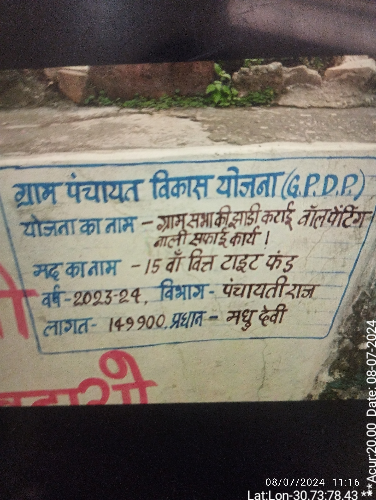 ग्राम पंचायत विकास योजना (G.P.D.P.)
योजना का नाम - ग्राम सभा की झाडी कटाई वॉल पेंटिंग
नाली सफाई कार्य।
मद का नाम - 15 वाँ वित्त टाइट फंड
वर्ष - 2023-24, विभाग - पंचायती राज
लागत - 149900. प्रधान - मधु देवी
08/07/2024 11:16
Lat:Lon-30,73:78.43
***Acur:20.00 Date: 08-07-2024